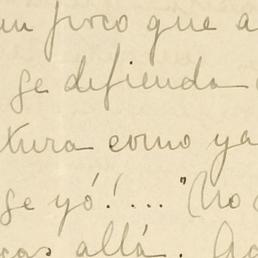 un poco que a
se defienda
tura como ya
se yó!...."No
cas allá. Ag